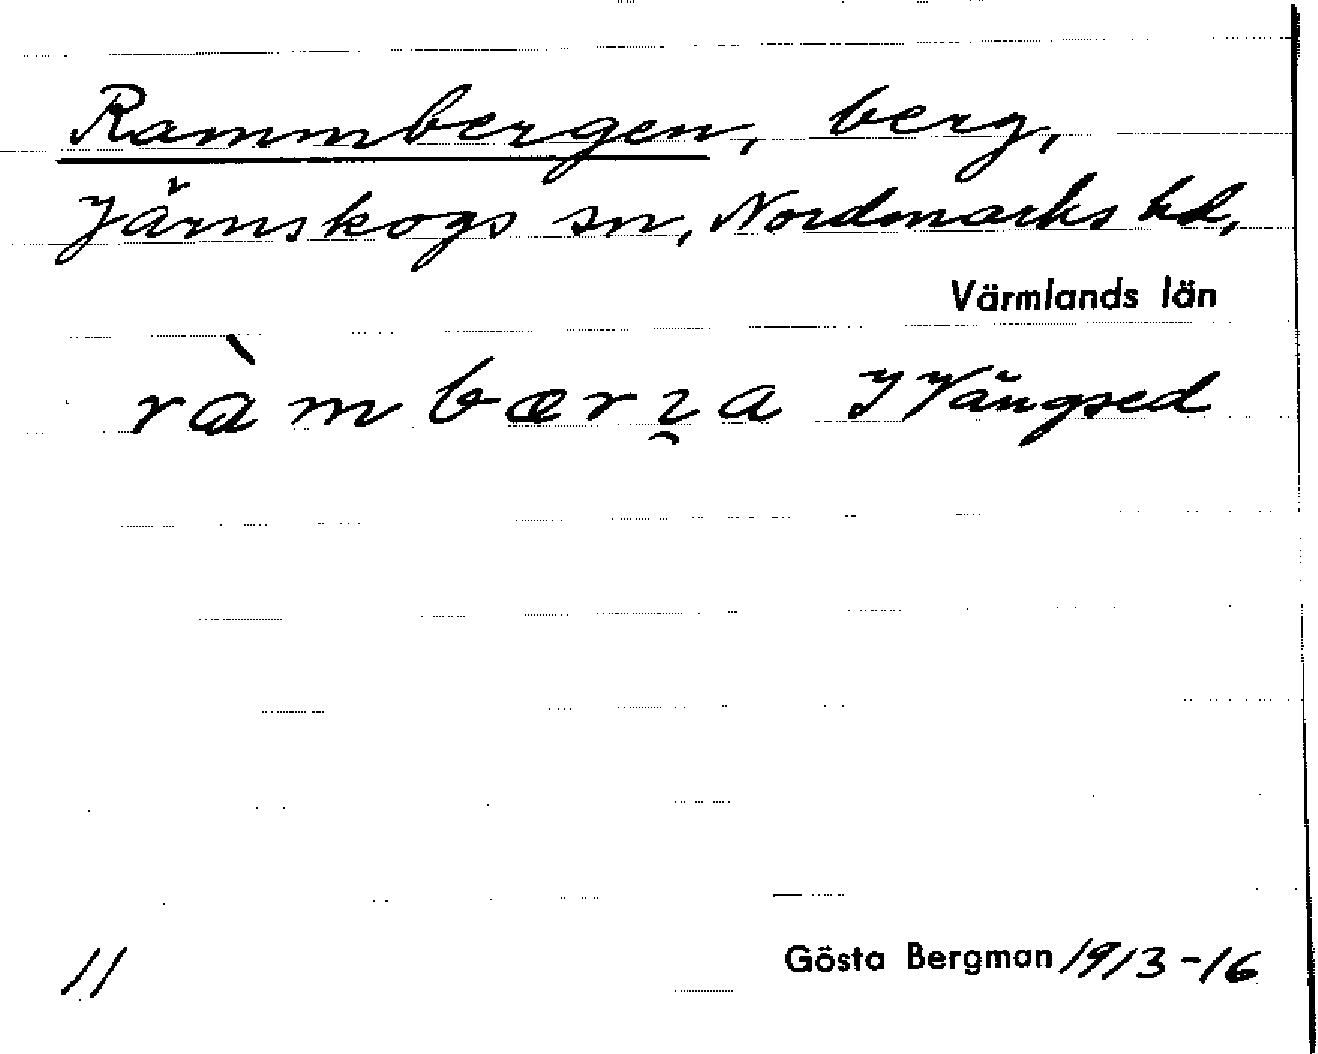 Rammbergen, berg,
Järnskogs sn, Nordmarks hd,
Värmlands län
ràmbærı̯a J Vängsed
11
Gösta Bergman 1913-16